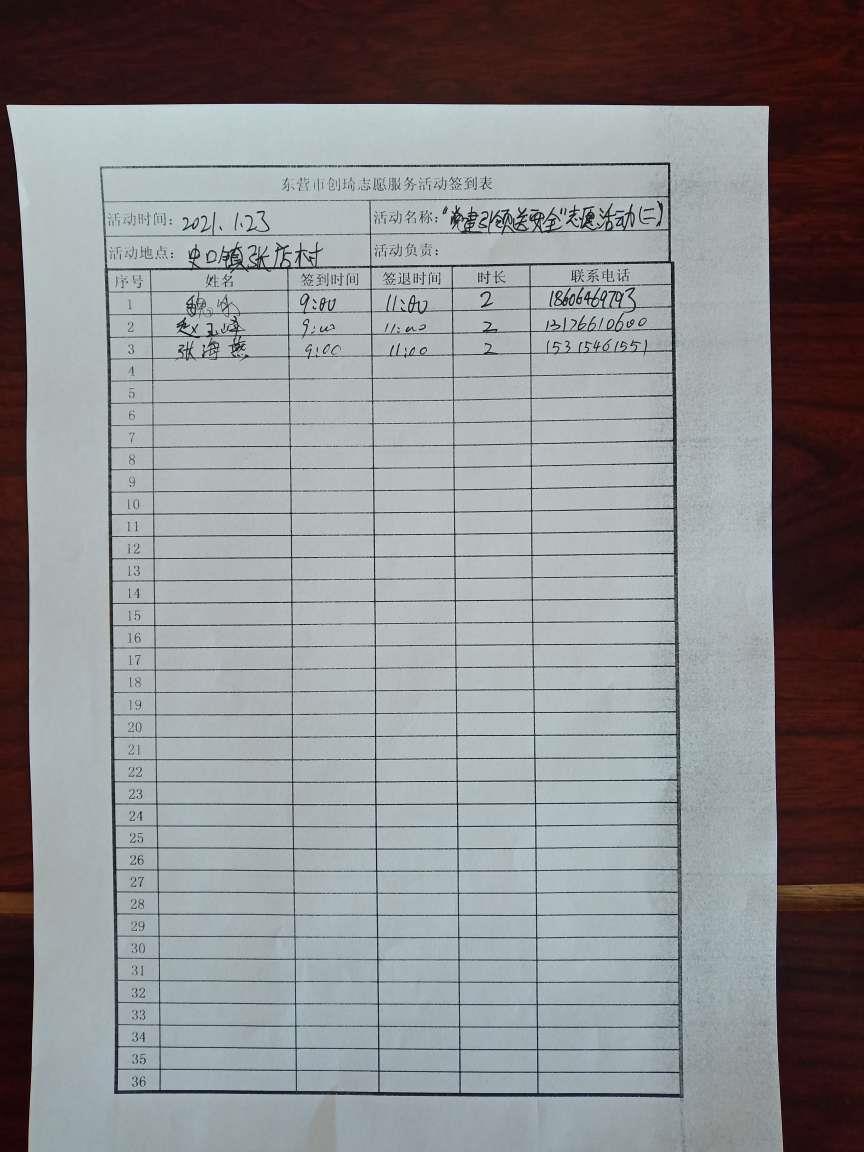 东营市创琦志愿服务活动签到表
活动时间：2021.1.23 活动名称："党建引领送安全"志愿活动(二)
活动地点：史口镇张店村 活动负责：
序号 姓名 签到时间 签退时间 时长 联系电话
1 9:00 11:00 2 18606469793
2 赵玉峰 9:00 11:00 2 13176610600
3 张海燕 9:00 11:00 2 15315461551
4
5
6
7
8
9
10
11
12
13
14
15
16
17
18
19
20
21
22
23
24
25
26
27
28
29
30
31
32
33
34
35
36